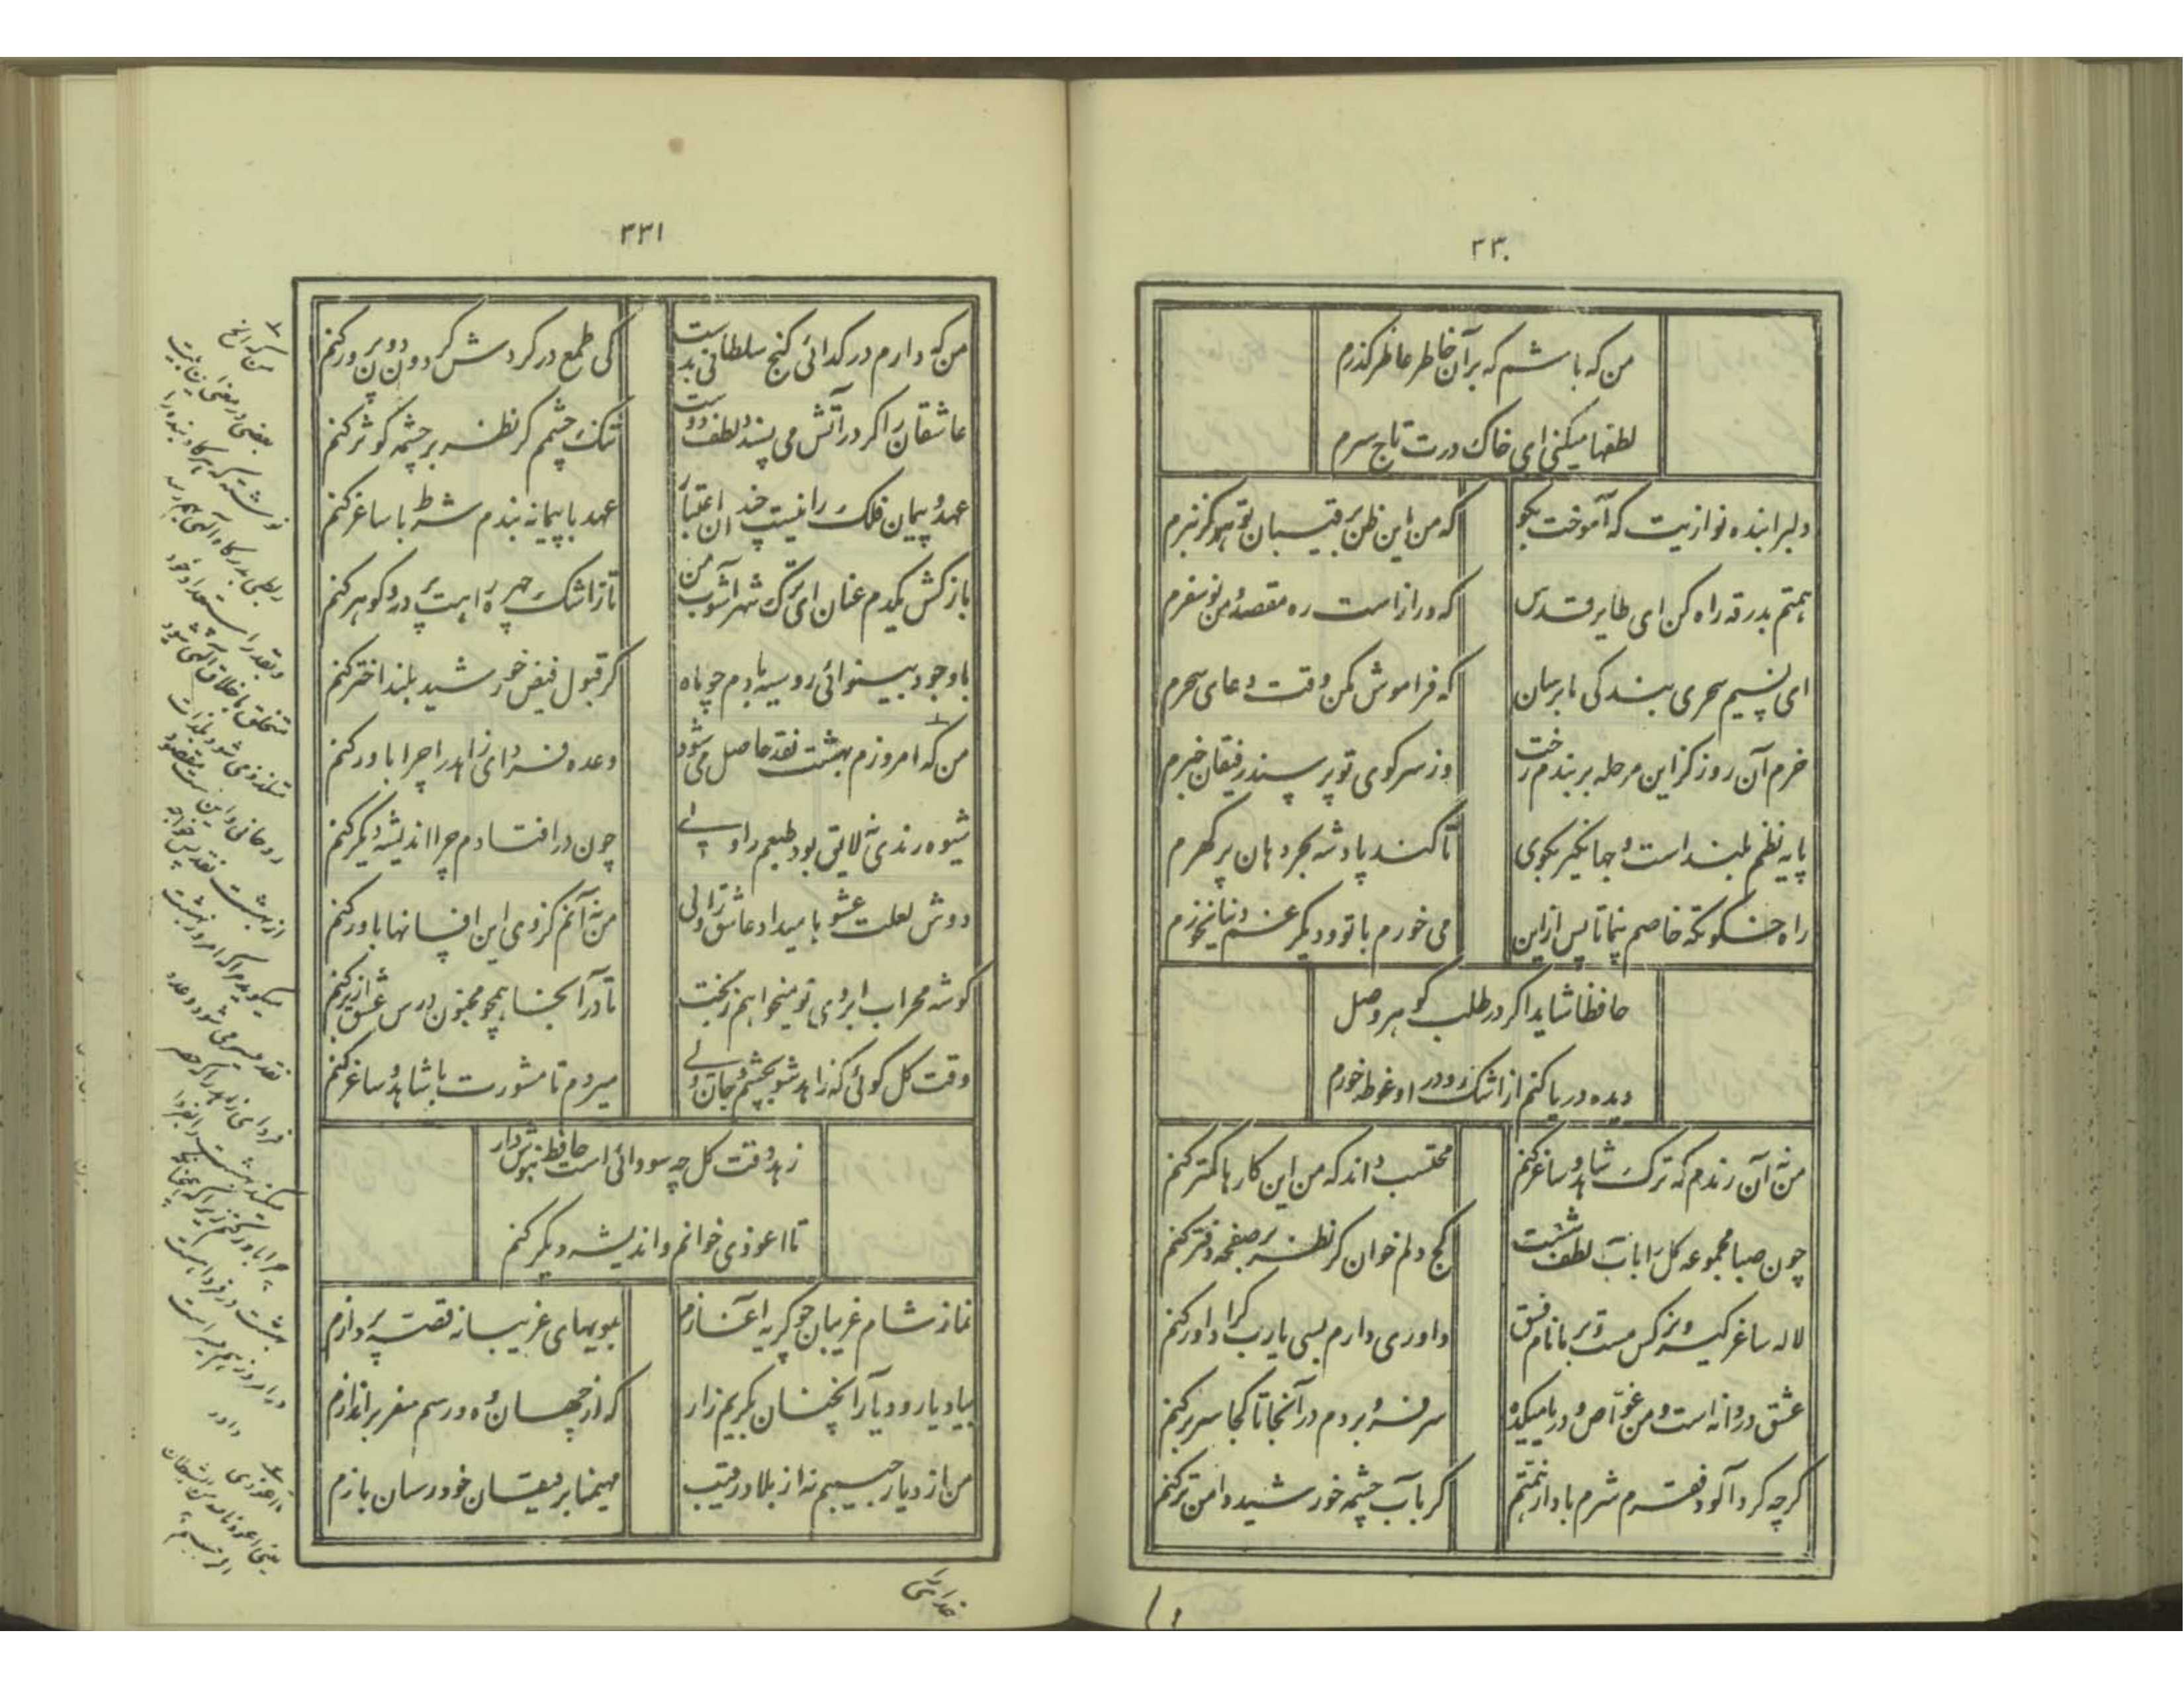 ۲۳۰
من که باشم که برآن خاطر عاطر گذرم
لطفها میکنی ای خاک درت تاج سرم
دلبرا بنده نوازیت که آموخت بگو
که من این ظن برقیبان تو هرگز نبرم
همتم بدرقه راه کن ای طایر قدس
که دراز است ره مقصد و من نوسفرم
ای نسیم سحری بندگی ما برسان
که فراموش مکن وقت دعای سحرم
خرم آن روز کزاین مرحله بربندم رخت
وز سر کوی تو پرسند رفیقان خبرم
پایه نظم بلند است و جهانگیر بگوی
تا کند پادشه بحر دهان پر گهرم
راه خلوتگه خاصم بنما تا پس ازاین
می خورم با تو و دیگر غم دنیا نخورم
حافظا شاید اگر در طلب گوهر وصل
دیده دریا کنم از اشک و در او غوطه خورم
من نه آن رندم که ترک شاهد و ساغر کنم
محتسب داند که من این کارها کمتر کنم
چون صبا مجموعه گل را بآب لطف شست
کج دلم خوان گر نظر بر صفحه دفتر کنم
لاله ساغر گیر و نرگس مست و بر ما نام فسق
داوری دارم بسی یارب کرا داور کنم
عشق دردانه است و من غواص و دریا میکده
سر فرو بردم در آنجا تا کجا سر بر کنم
گرچه گردآلود فقرم شرم باد از همتم
گر بآب چشمه خورشید دامن تر کنم
۲۳۱
من که دارم در گدائی گنج سلطانی بدست
کی طمع در گردش گردون دون پرور کنم
عاشقان را گر در آتش می پسندد لطف دوست
تنگ چشمم گر نظر بر چشمه کوثر کنم
عهد و پیمان فلک را نیست چندان اعتبار
عهد با پیمانه بندم شرط با ساغر کنم
باز کش یکدم عنان ای ترک شهرآشوب من
تا ز اشک چهره راهت پر در و گوهر کنم
با وجود بینوائی روسیه بادم چو ماه
گر قبول فیض خورشید بلند اختر کنم
من که امروزم بهشت نقد حاصل می شود
وعده فردای زاهد را چرا باور کنم
شیوه رندی نه لایق بود طبعم را ولی
چون در افتادم چرا اندیشه دیگر کنم
دوش لعلت عشوه‌ها میداد عاشق را ولی
من نه آنم کز وی این افسانها باور کنم
گوشه محراب ابروی تو میخواهم ز بخت
تا در آنجا همچو مجنون درس عشق از بر کنم
وقت گل گوئی که زاهد شو بچشم و جان ولی
میروم تا مشورت با شاهد و ساغر کنم
زهد وقت گل چه سودائی است حافظ هوش دار
تا اعوذی خوانم و اندیشه دیگر کنم
نماز شام غریبان چو گریه آغازم
بمویهای غریبانه قصه پردازم
بیاد یار و دیار آنچنان بگریم زار
که از جهان ره و رسم سفر براندازم
من از دیار حبیبم نه از بلاد رقیب
مهیمنا برفیقان خود رسان بازم